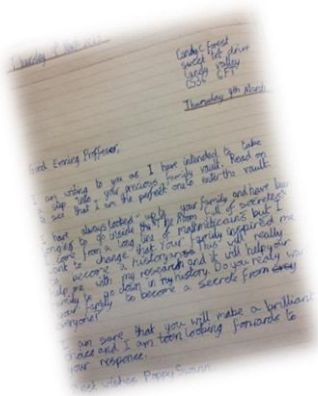 Thursday
Candy C Forest
sweet
valley
CS56 CFT
Thursday 9th March
Good Evening Proffesor,
I am writing to you as I have intended to take
a step into your precious family vault. Read on
to see that I am the perfect one to enter the vault.
I have always looked up to your family and have been
longing to go inside the Room of secrets.
I come from a long line of but I
want to change that. Your family inspired me
to become a historyan. This will really
help me with my research and it will help your
family to go down in history. Do you really want
your family to become a secrets from
everyone?
I am sure that you will make a brilliant
choice and I am looking forwards to
your response.
Best wishes Poppy Swann